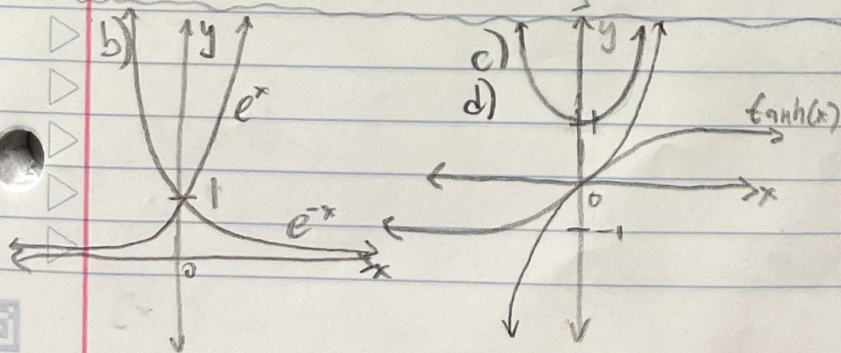 b) y
e^x
1
e^-x
0 x
c) y
d) 1
tanh(x)
0 x
-1